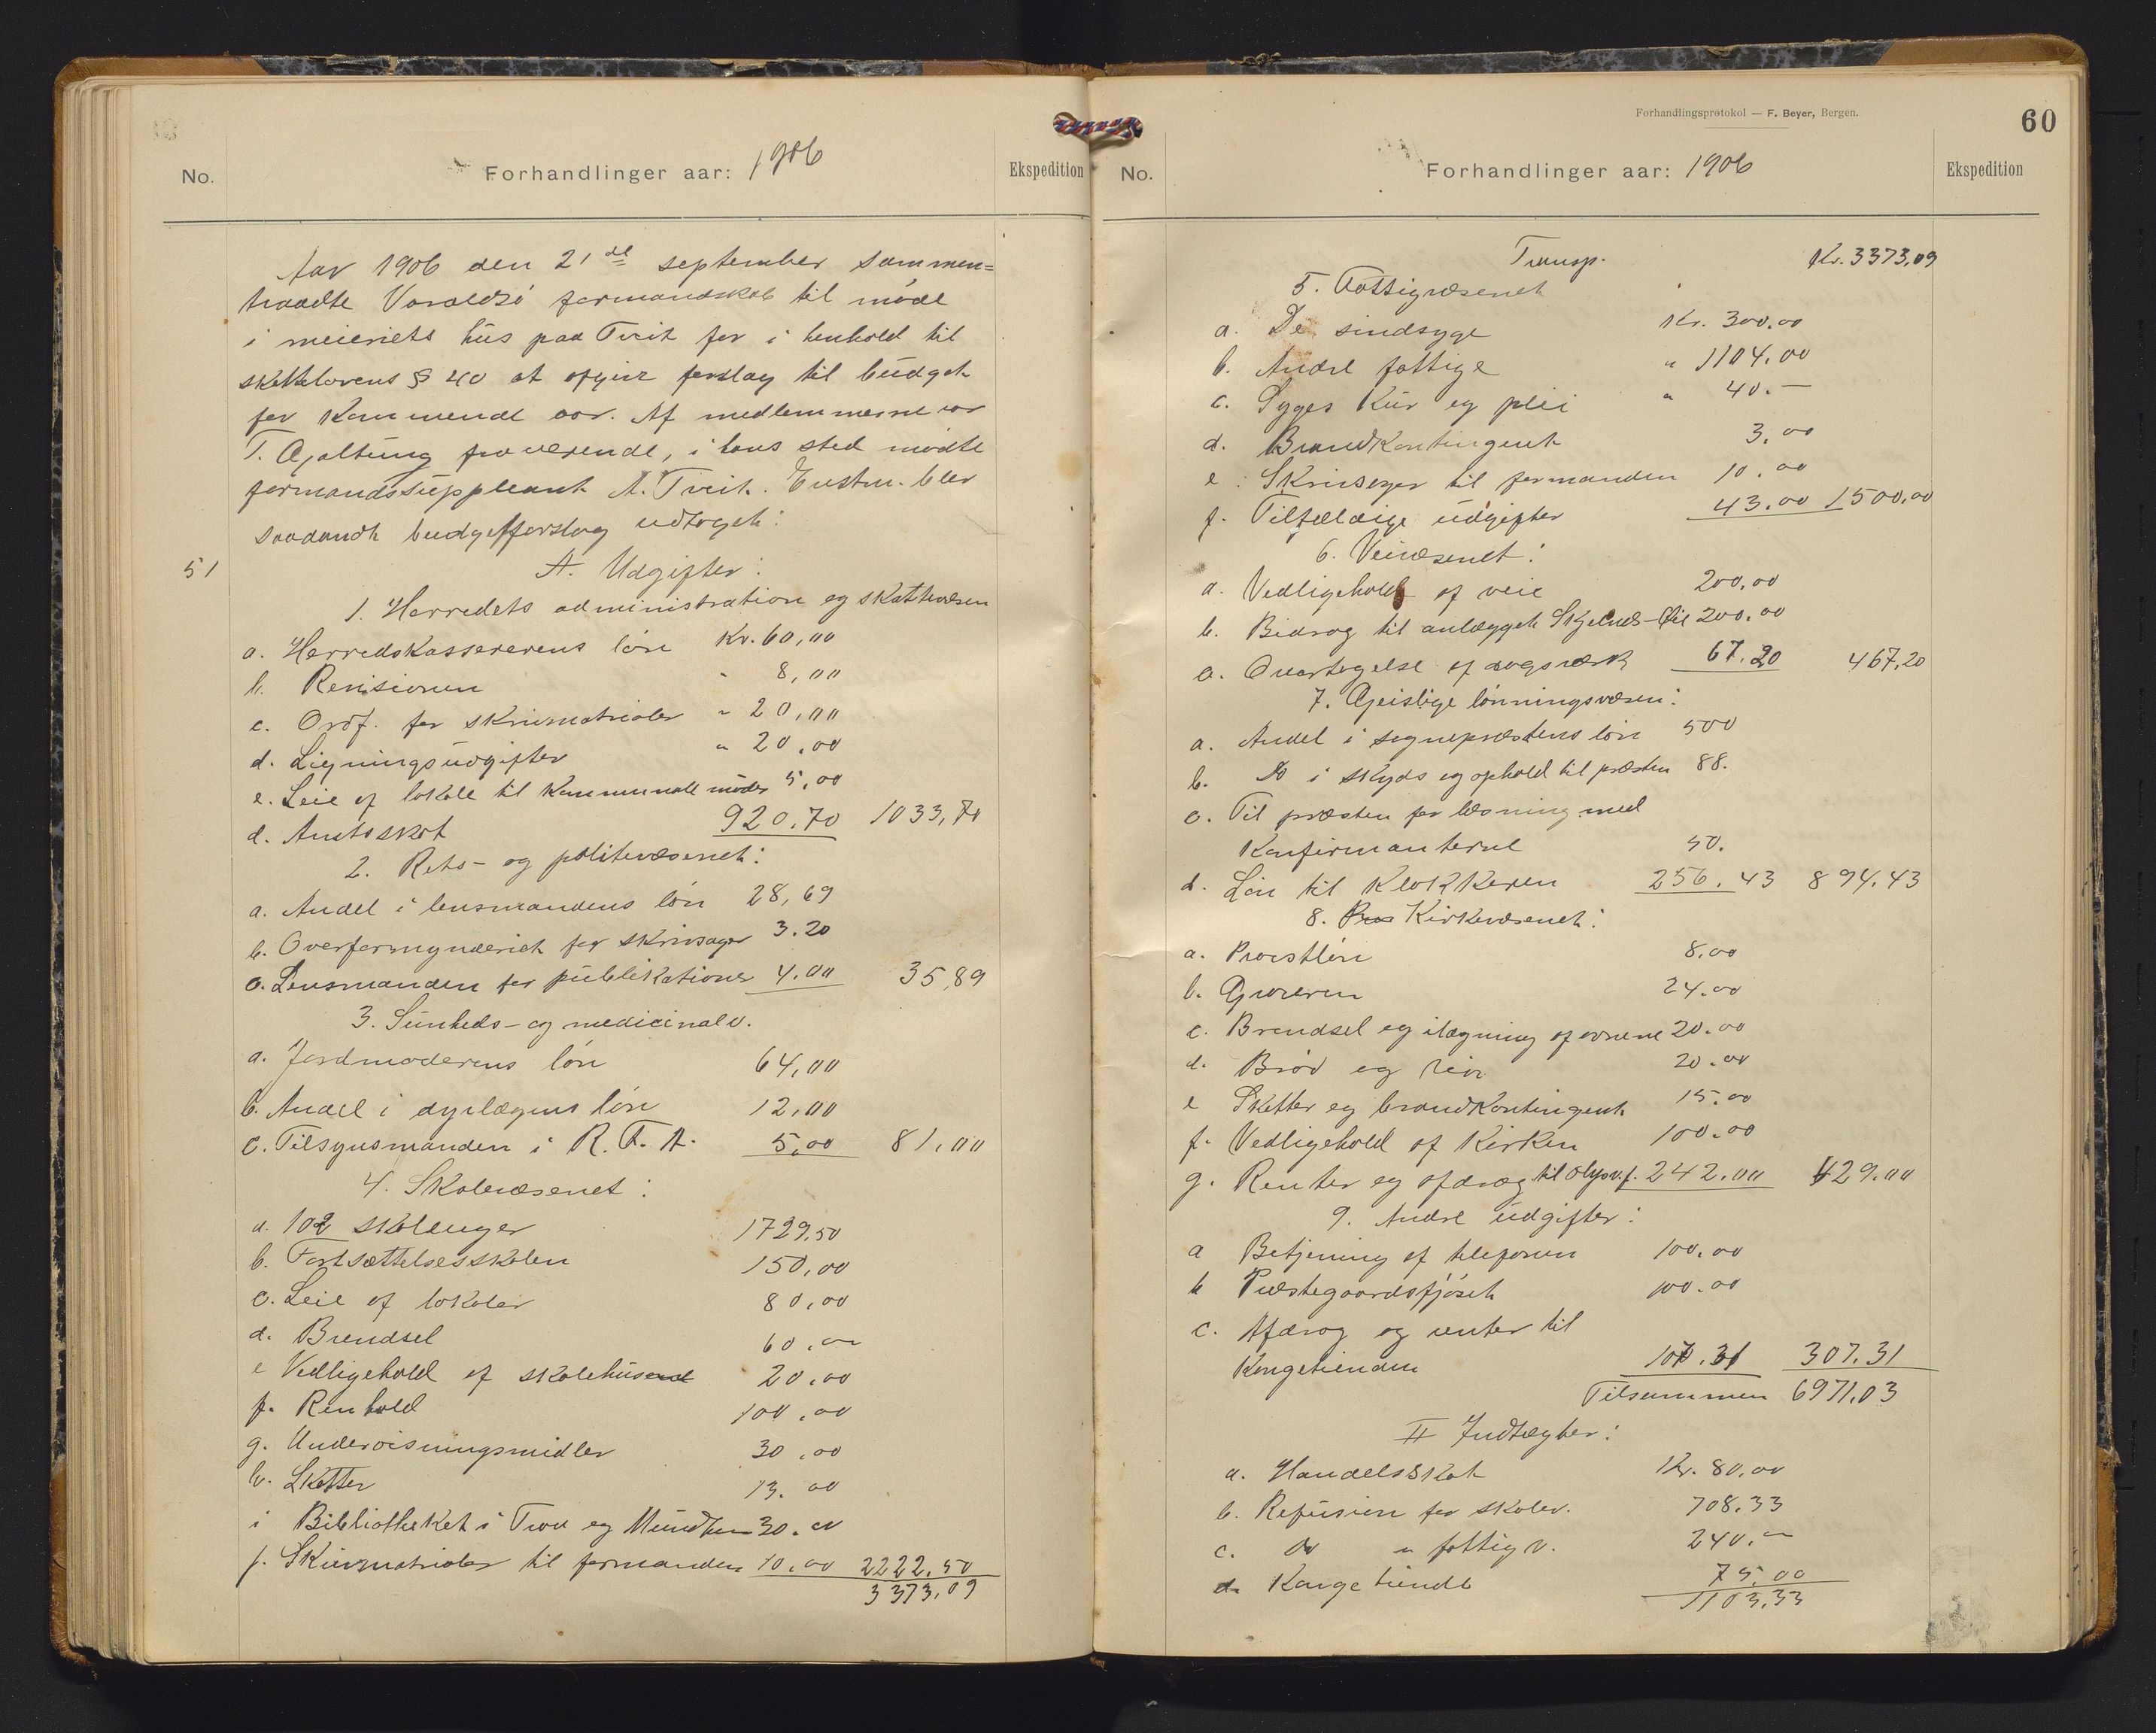 No.
Forhandlinger aar: 1906
Ekspedition
Aar 1906 den 21de september sammen=
traadte Varaldsö formandskab til möde
i meieriets hus paa Tveit for i henhold til
skattelovens § 40 at afgive forslag til budget
for kommende aar. Af medlemmerne var
T. Gjaltung fraværende, i hans sted mödte
formandssuppleant A. Tveit. Enstm. blev
saadandt budgetforslag udtaget:
51
A. Udgifter:
1. Herredets administration og skattevæsen
a. Herredskassererens lön Kr. 60,00
b. Revisionen " 8,00
c. Ordf. for skrivmatrialer " 20,00
d. Ligningsudgifter " 20,00
e. Leie af lokale til kommunale möder 5,00
d. Amtsskat 920,70 1033,70
2. Rets- og politivæsenet:
a. Andel i lensmandens lön 28,69
b. Overformynderiet for skrivsager 3.20
c. Lensmanden for publikationer 4.00 35,89
3. Sunheds- og medicinalv.
a. Jordmoderens lön 64,00
b. Andel i dyrlægens lön 12,00
c. Tilsynsmanden i R. F. A. 5,00 81,00
4. Skolevæsenet:
a. 102 skoleuger 1729.50
b. Fortsættelsesskolen 150,00
c. Leie af lokaler 80,00
d. Brendsel 60,00
e Vedligehold af skolehusene 20,00
f. Renhold 100,00
g. Undervisningsmidler 30,00
h. Skatter 13.00
i Bibliotheket i Tron og Mundheim 30.00
j. Skrivmatrialer til formanden 10,00 2222,50
3373,09
Forhandlingsprotokol — F. Beyer, Bergen.
60
No.
Forhandlinger aar: 1906
Ekspedition
Transp. Kr. 3373,09
5. Fattigvæsenet
a. De sindsyge Kr. 300,00
b. Andre fattige " 1104,00
c. Syges kur og pleie " 40.—
d. Brandkontingent 3,00
e. Skrivsager til formanden 10.00
f. Tilfældige udgifter 43.00 1500,00
6. Veivæsenet:
a. Vedligehold af veie 200,00
b. Bidrag til anlægget Skjelnes-Öie 200,00
c. Overtagelse af dagsverk 67.20 467,20
7. Geistlige lönningsvæsen:
a. Andel i sognepræstens lön 500
b. Do i skyds og ophold til præsten 88.
c. Til præsten for læsning med
konfirmanterne 50.
d. Lön til klokkeren 256.43 894.43
8. Kirkevæsenet:
a. Provstlön 8.00
b. Graveren 24.00
c. Brendsel og ilægning af ovnene 20.00
d. Bröd og vin 20.00
e Skatter og brandkontingent 15.00
f. Vedligehold af kirken 100.00
g. Renter og afdrag til Olysv.f. 242.00 429.00
9. Andre udgifter:
a Betjening af telefonen 100.00
b Præstegaardsfjöset 100.00
c. Afdrag og renter til
Kongetienden 107.31 307.31
Tilsammen 6971,03
II Indtægter:
a. Handelsskat Kr. 80,00
b. Refusion for skolev. 708.33
c. Do " fattigv. 240.—
d. Kongetiende 75,00
1103,33